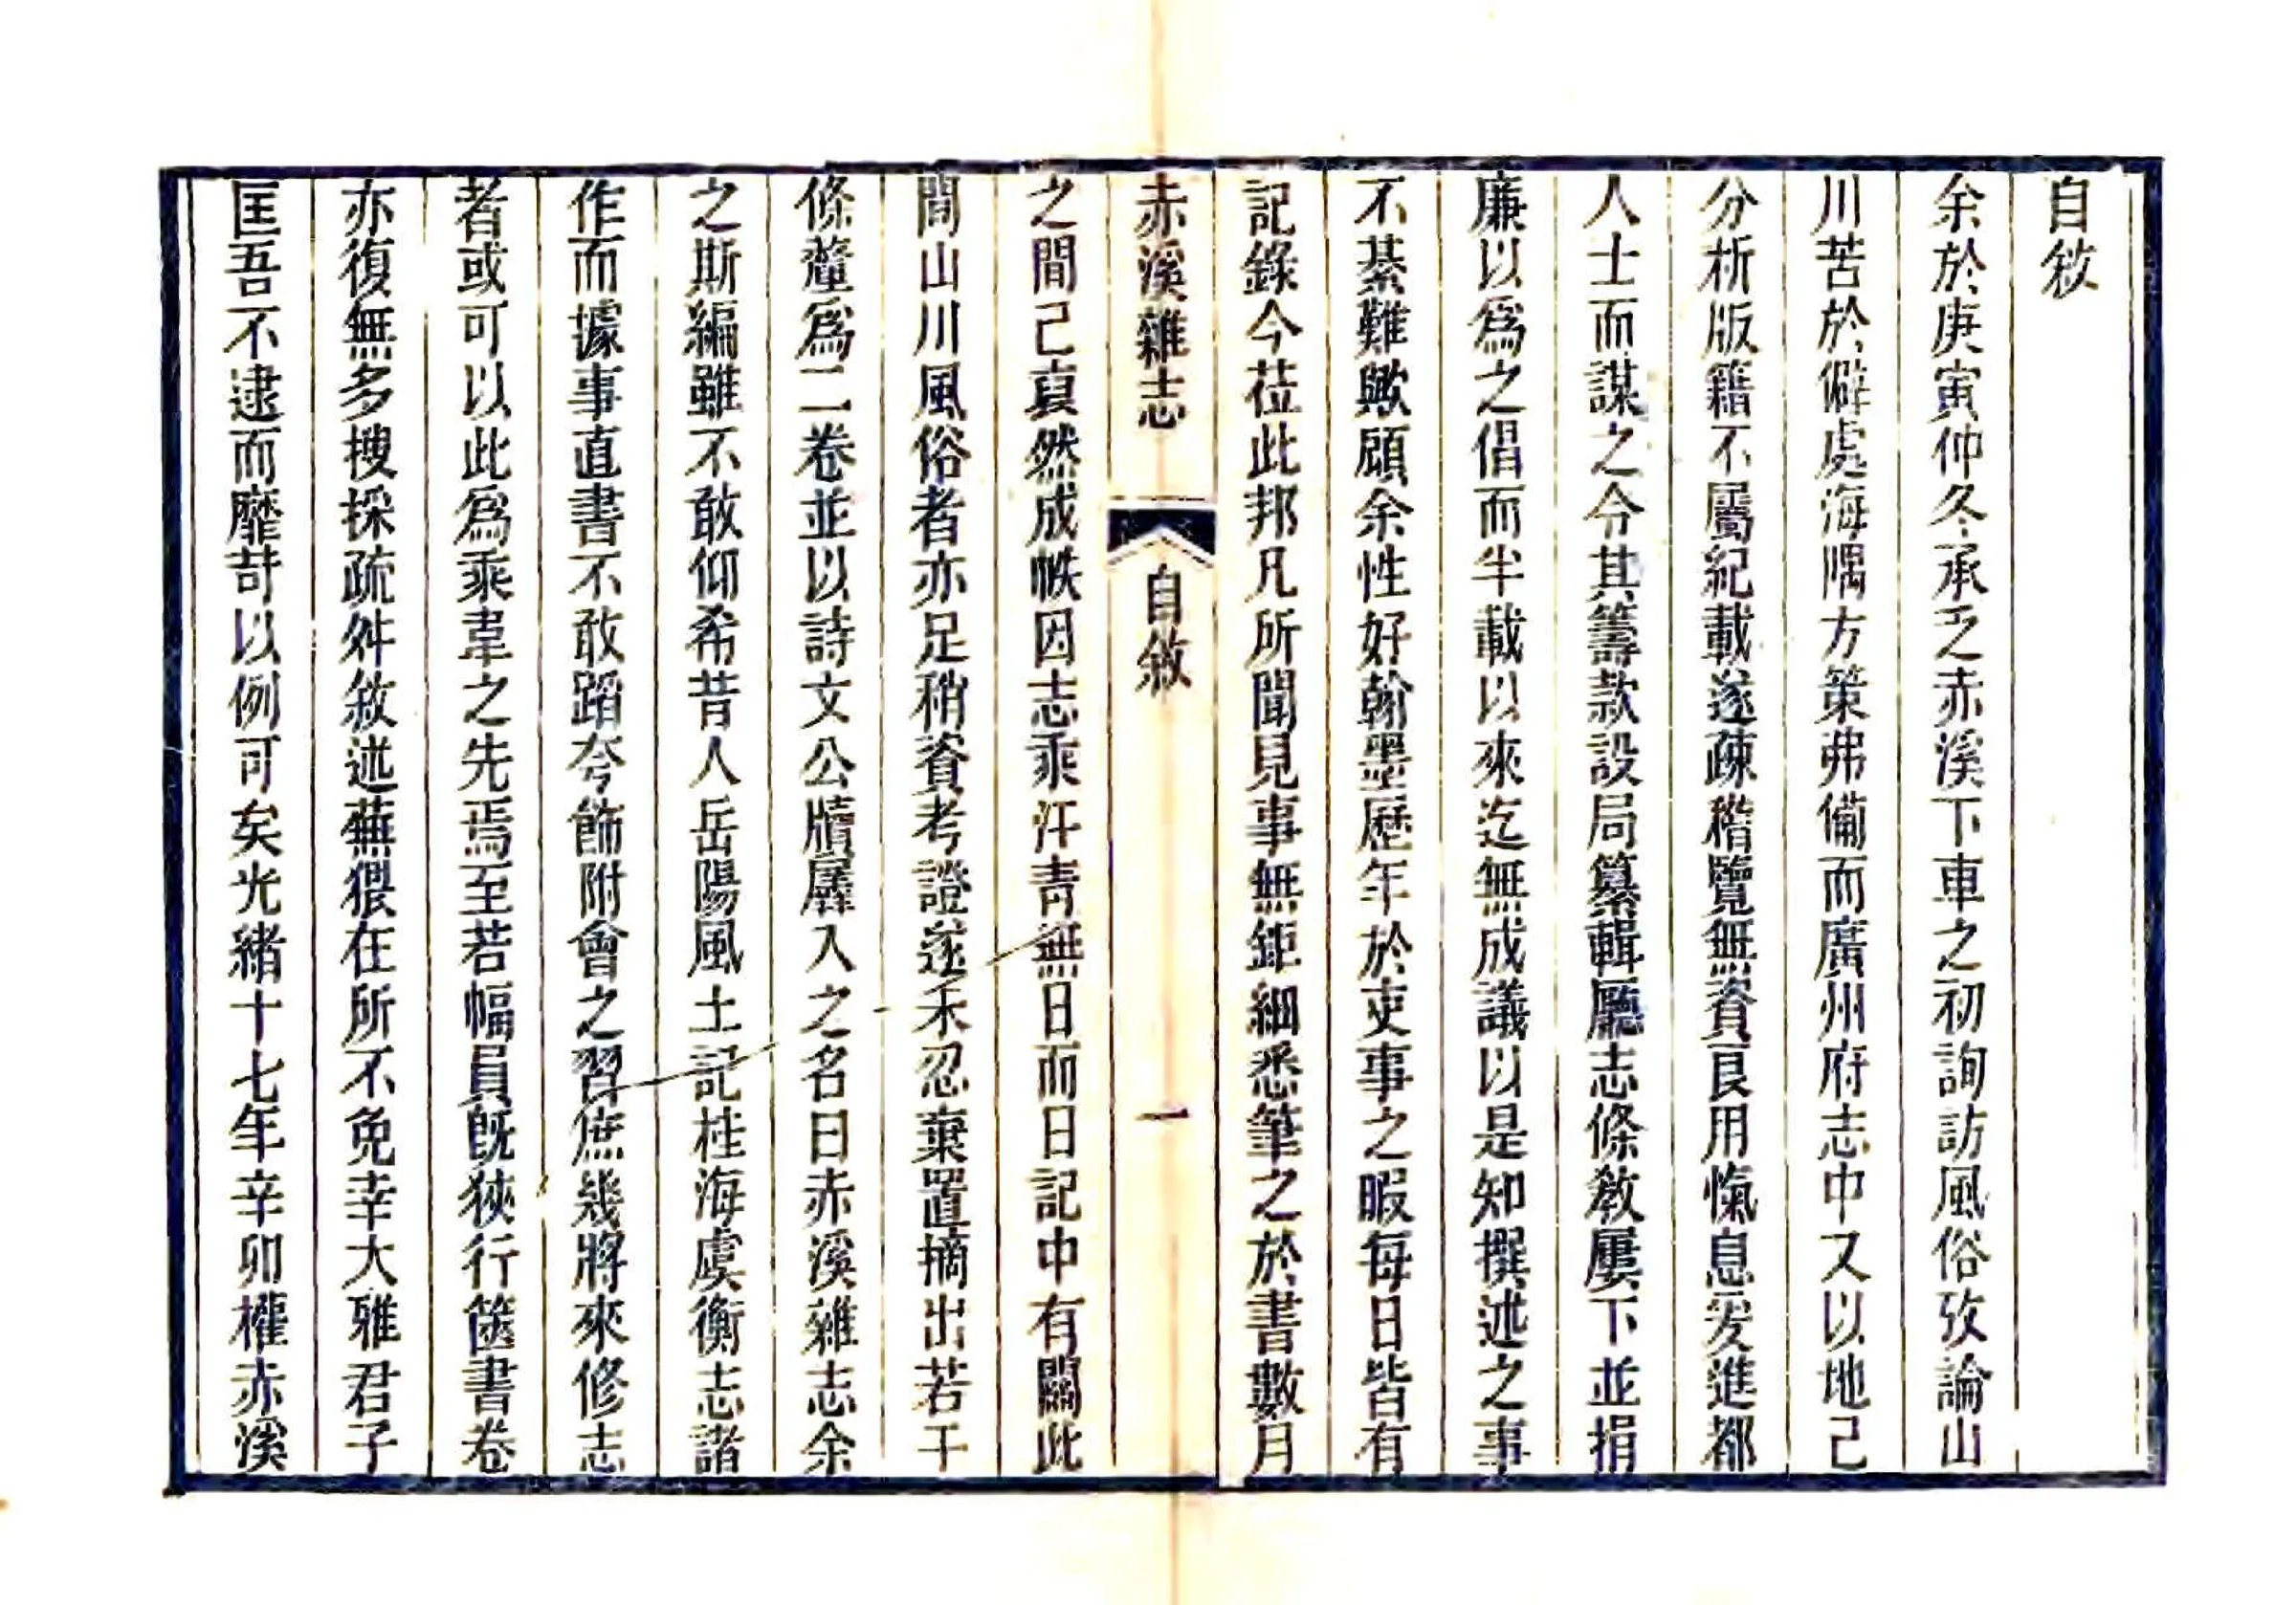 自敘
余於庚寅仲冬承乏赤溪下車之初詢訪風俗攷論山
川苦於僻處海隅方策弗備而廣州府志中又以地已
分析版籍不屬紀載遂疎稽覽無資良用愾息爰進都
人士而謀之令其籌款設局纂輯廳志條敎屢下並捐
廉以爲之倡而半載以來迄無成議以是知撰述之事
不綦難歟顧余性好翰墨歷年於吏事之暇每日皆有
記錄今莅此邦凡所聞見事無鉅細悉筆之於書數月
赤溪雜志
自敘
一
之間己裒然成帙因志乘汗青無日而日記中有關此
間山川風俗者亦足稍資考證遂不忍棄置摘出若干
條釐爲二卷並以詩文公牘羼入之名曰赤溪雜志余
之斯編雖不敢仰希昔人岳陽風土記桂海虞衡志諸
作而據事直書不敢蹈夸飾附會之習庶幾將來修志
者或可以此爲乘韋之先焉至若幅員旣狹行篋書卷
亦復無多搜採疏舛敘述蕪猥在所不免幸大雅君子
匡吾不逮而靡苛以例可矣光緒十七年辛卯權赤溪